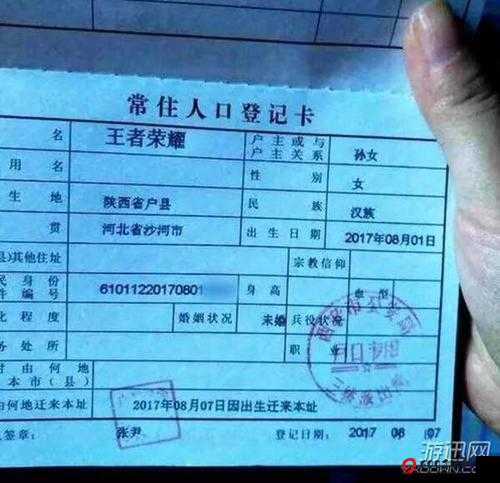 常住人口登记卡
名 王者荣耀 户主或与户主关系 孙女
用名 性别 女
生地 陕西省户县 民族 汉族
贯 河北省沙河市 出生日期 2017年08月01日
县)其他住址 宗教信仰
民身份件编号 61011220170801 身高 血型
化程度 婚姻状况 未婚 兵役状况
务处所 职业
时由何地
本市(县)
由何地迁来本址 2017年08月07日因出生迁来本址
人签章: 张尹 登记日期: 2017 08 07
户口专用
游迅网